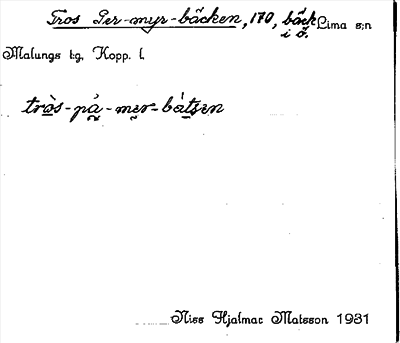 Tros Per-myr-bäcken, 170, bäck Lima s:n
i ö.
Malungs t:g, Kopp. l.
tròs-på̀-mer-bátsen
Niss Hjalmar Matsson 1931